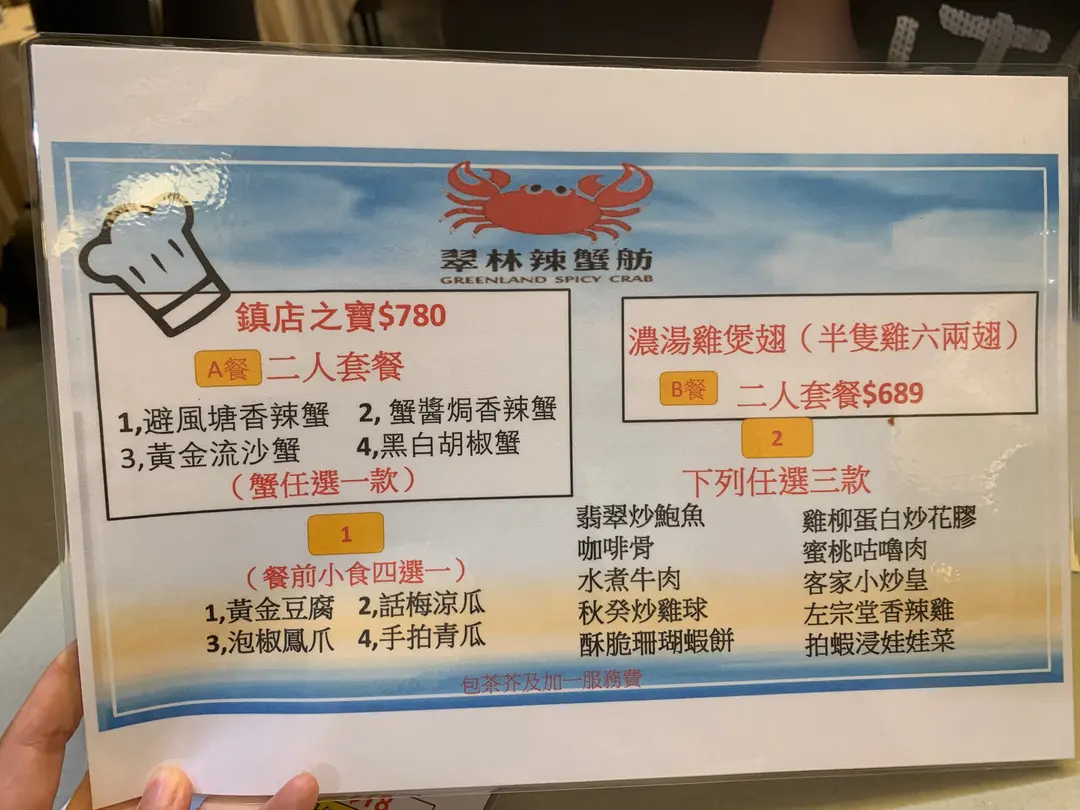 翠林辣蟹舫
GREENLAND SPICY CRAB
鎮店之寶$780
A餐 二人套餐
1,避風塘香辣蟹 2,蟹醬焗香辣蟹
3,黃金流沙蟹 4,黑白胡椒蟹
（蟹任選一款）
濃湯雞煲翅（半隻雞六兩翅）
B餐 二人套餐$689
1
（餐前小食四選一）
1,黃金豆腐 2,話梅涼瓜
3,泡椒鳳爪 4,手拍青瓜
2
下列任選三款
翡翠炒鮑魚 雞柳蛋白炒花膠
咖啡骨 蜜桃咕嚕肉
水煮牛肉 客家小炒皇
秋癸炒雞球 左宗堂香辣雞
酥脆珊瑚蝦餅 拍蝦浸娃娃菜
包茶芥及加一服務費